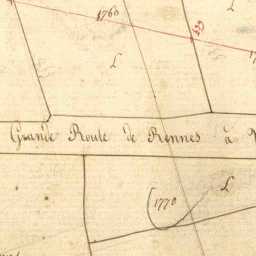 1760
L
L
Grande Route de Rennes à
1770
L